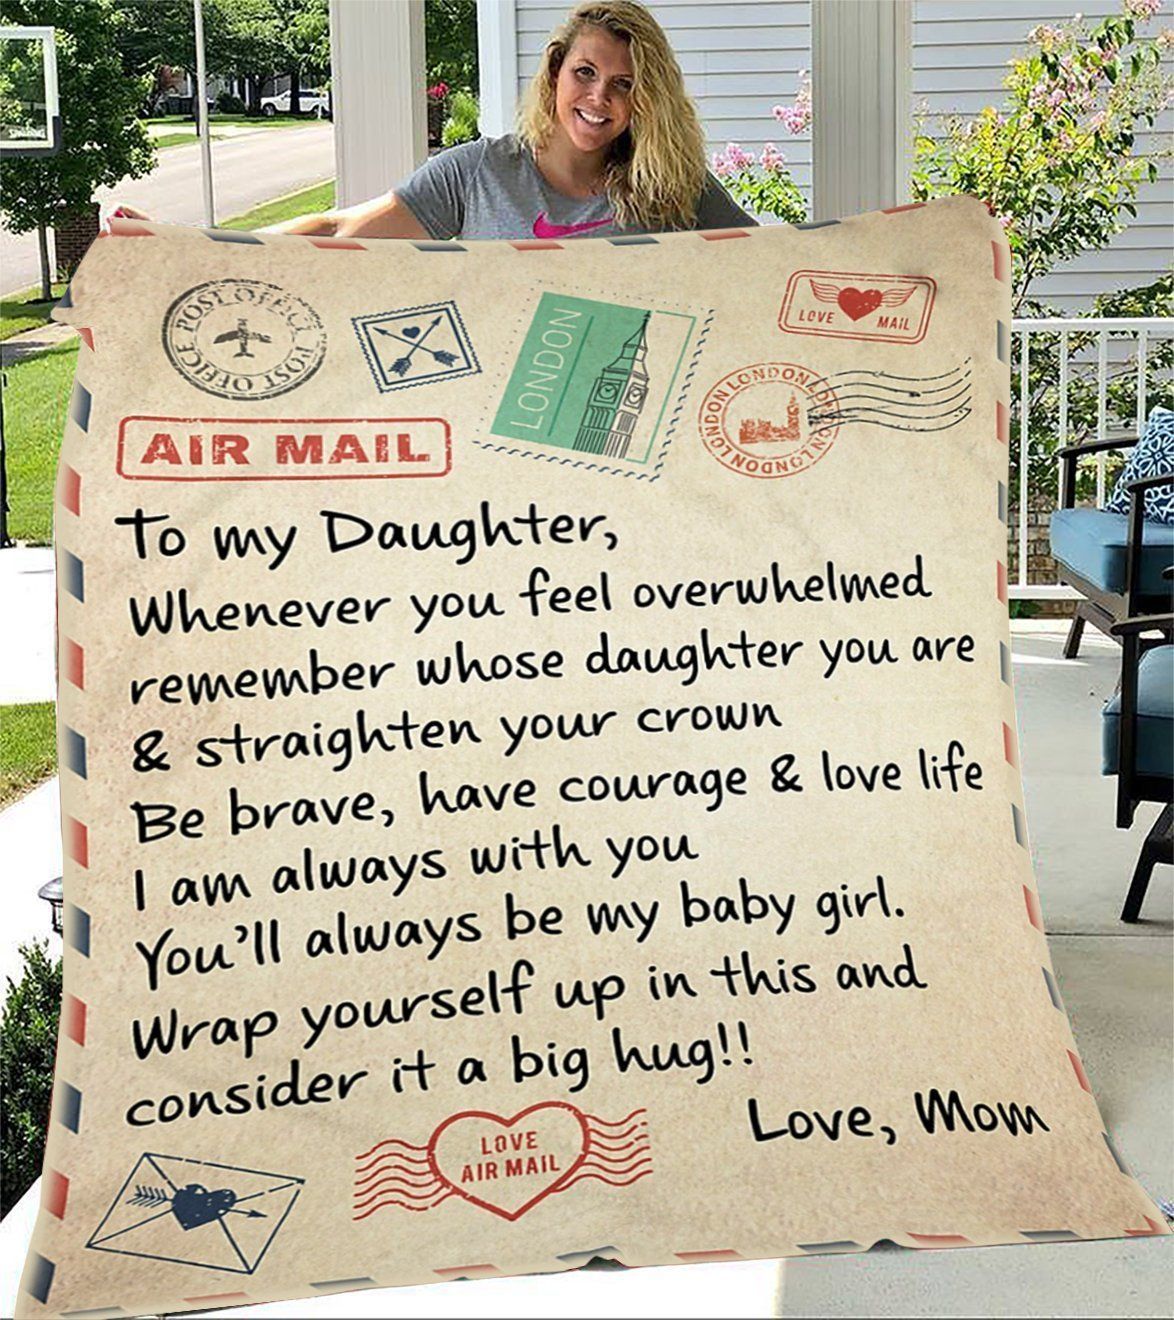 SPALDING
POST OFFICE POST OFFICE
LONDON
LOVE MAIL
LONDON LONDON LONDON LONDON LONDON
AIR MAIL
To my Daughter,
Whenever you feel overwhelmed
remember whose daughter you are
& straighten your crown
Be brave, have courage & love life
I am always with you
You'll always be my baby girl.
Wrap yourself up in this and
consider it a big hug!!
Love, Mom
LOVE
AIR MAIL